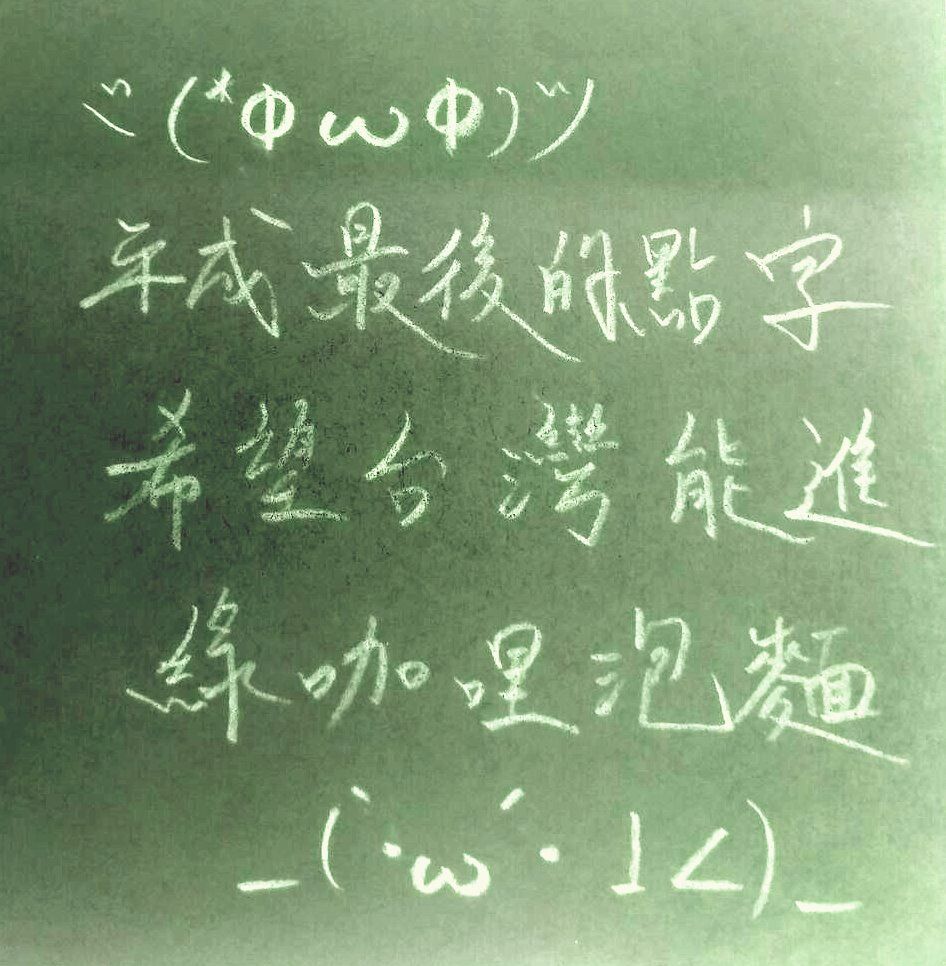 ヾ(*ΦωΦ)ツ
平成最後的點字
希望台灣能進
綠咖哩泡麵
_(´･ω･`」∠)_